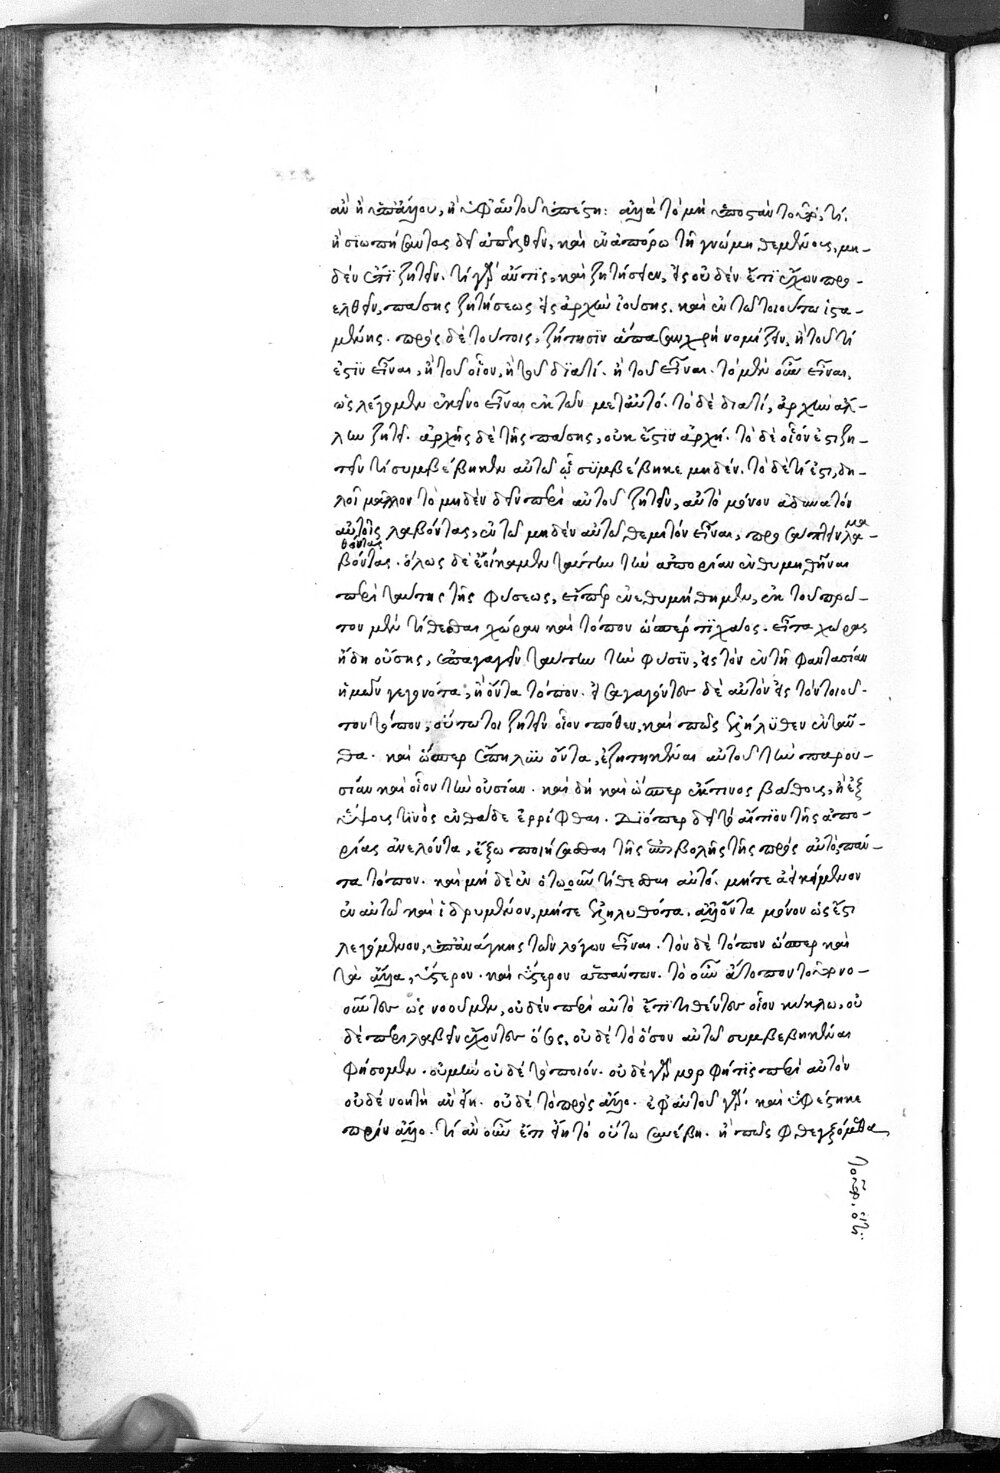 ἂν ἢ ὑπ' ἄλλου, ἢ ὑφ' αὑτοῦ ὑπέστη: ἀλλὰ τὸ μὴ ὑποστὰν τοῦτο, τί.
ἢ σιωπήσαντας δεῖ ἀπελθεῖν, καὶ ἐν ἀπόρῳ τῇ γνώμῃ θεμένους, μη-
δὲν ἔτι ζητεῖν. τί γὰρ ἄν τις, καὶ ζητήσειεν, εἰς οὐδὲν ἔτι ἔχων προ-
ελθεῖν, πάσης ζητήσεως εἰς ἀρχὴν ἰούσης, καὶ ἐν τῷ τοιούτῳ ἱστα-
μένης. πρὸς δὲ τούτοις, ζήτησιν ἅπασαν χρὴ νομίζειν, ἢ τοῦ τί
ἐστιν εἶναι, ἢ τοῦ οἷον, ἢ τοῦ διατί. ἢ τοῦ εἶναι. τὸ μὲν οὖν εἶναι,
ὡς λέγομεν ἐκεῖνο εἶναι ἐκ τῶν μετ' αὐτό. τὸ δὲ διατί, ἀρχὴν ἄλ-
λην ζητεῖ. ἀρχῆς δὲ τῆς πάσης, οὐκ ἔστιν ἀρχή. τὸ δὲ οἷόν ἐστι ζη-
τεῖν τί συμβέβηκεν αὐτῷ ᾧ συμβέβηκε μηδέν. τὸ δὲ τί ἐστι, δη-
λοῖ μᾶλλον τὸ μηδὲν δεῖν περὶ αὐτοῦ ζητεῖν, αὐτὸ μόνον εἰ δυνατὸν
αὐτοῖς λαβόντας, ἐν τῷ μηδὲν αὐτῷ θεμιτὸν εἶναι, προσάπτειν μα
θόντας λα-
βόντας. ὅλως δὲ ἐοίκαμεν ταύτην τὴν ἀπορίαν ἐνθυμηθῆναι
περὶ ταύτης τῆς φύσεως, εἴπερ ἐνεθυμήθημεν, ἐκ τοῦ πρῶ-
τον μὲν τίθεσθαι χώραν καὶ τόπον ὥσπέρ τι χάος. εἶτα χώρας
ἤδη οὔσης, ἐπαγαγεῖν ταύτην τὴν φύσιν, εἰς τὸν ἐν τῇ φαντασίᾳ
ἡμῶν γεγονότα, ἢ ὄντα τόπον. εἰσαγαγόντων δὲ αὐτὸν εἰς τὸν τοιοῦ-
τον τόπον, οὕτω τοι ζητεῖν οἷον πόθεν, καὶ πῶς ἐξελήλυθεν ἐνταῦ-
θα. καὶ ὥσπερ ἔπηλυν ὄντα, ἐζητηκέναι αὐτοῦ τὴν παρου-
σίαν καὶ οἷον τὴν οὐσίαν. καὶ δὴ καὶ ὥσπερ ἔκ τινος βάθους, ἢ ἐξ
ὕψους τινὸς ἐνθάδε ἐρρίφθαι. διόπερ δεῖ τὸ αἴτιον τῆς ἀπο-
ρίας ἀνελόντα, ἔξω ποιήσασθαι τῆς ἐπιβολῆς τῆς πρὸς αὐτό, πάν-
τα τόπον. καὶ μὴ δὲ ἐν ὁτῳοῦν τίθεσθαι αὐτό. μήτε ἀεὶ κείμενον
ἐν αὐτῷ καὶ ἱδρυμένον, μήτε ἐξεληλυθότα. ἀλλ' ὄντα μόνον ὡς ἔστι
λεγόμενον, ὑπ' ἀνάγκης τῶν λόγων εἶναι. τὸν δὲ τόπον ὥσπερ καὶ
τὰ ἄλλα, ὕστερον. καὶ ὕστερον ἁπάντων. τὸ οὖν ἄτοπον τοῦτο νο-
οῦντες ὡς νοοῦμεν, οὐδὲν περὶ αὐτὸ ἔτι τιθέντες οἷον κύκλῳ, οὐ
δὲ περιλαβεῖν ἔχοντες ὅσος, οὐδὲ τὸ ὅσον αὐτῷ συμβεβηκέναι
φήσομεν. οὐ μὴν οὐδὲ τὸ ποιόν. οὐδὲ γὰρ μορφή τις περὶ αὐτὸν
οὐδὲ νοητὴ ἂν εἴη. οὐδὲ τὸ πρὸς ἄλλο. ἐφ' αὑτοῦ γὰρ καὶ ὑφέστηκε
πρὶν ἄλλο. τί ἂν οὖν ἔτι εἴη τὸ οὕτω συνέβη. ἢ πῶς φθεγξόμεθα
τοῦτο. ὅτι